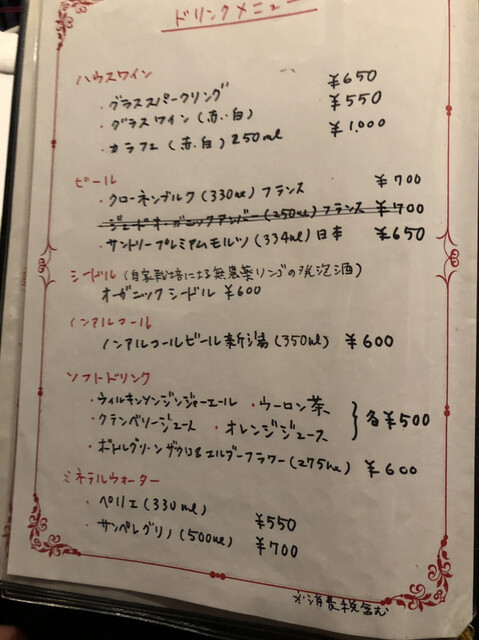 ドリンクメニュー
ハウスワイン
・グラススパークリング ¥650
・グラスワイン(赤・白) ¥550
・カラフェ(赤・白)250ml ¥1,000
ビール
・クローネンブルク(330ml)フランス ¥700
ジェードオーガニックアンバー(250ml)フランス ¥700
・サントリープレミアムモルツ(334ml)日本 ¥650
シードル(自家栽培による無農薬リンゴの発泡酒)
オーガニックシードル ¥600
ノンアルコール
ノンアルコールビール 新潟(350ml) ¥600
ソフトドリンク
・ウィルキンソンジンジャーエール ・ウーロン茶
・クランベリージュース ・オレンジジュース } 各¥500
・ボトルグリーン ザクロ&エルダーフラワー(275ml) ¥600
ミネラルウォーター
・ペリエ(330ml) ¥550
・サンペレグリノ(500ml) ¥700
※消費税含む